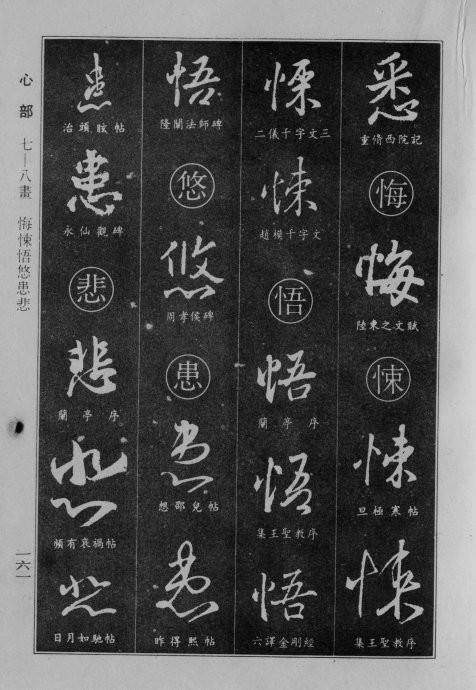 悉
重脩西院記
悔
悔
陸柬之文賦
悚
悚
旦極寒帖
悚
集王聖教序
悚
二儀千字文三
悚
趙模千字文
悟
悟
蘭亭序
悟
集王聖教序
悟
六譯金剛經
悟
隆闡法師碑
悠
悠
周孝侯碑
患
患
想邵兒帖
患
昨得熙帖
患
治頭眩帖
患
永仙觀碑
悲
悲
蘭亭序
悲
頻有哀禍帖
悲
日月如馳帖
心部 七—八畫 悔悚悟悠患悲
一六一